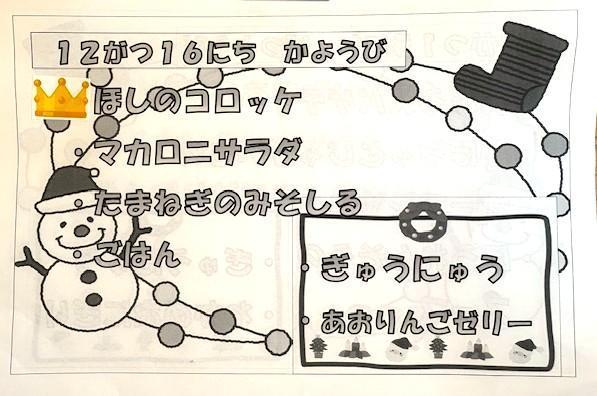 12がつ16にち　かようび
ほしのコロッケ
・マカロニサラダ
・たまねぎのみそしる
・ごはん
・ぎゅうにゅう
・あおりんごゼリー